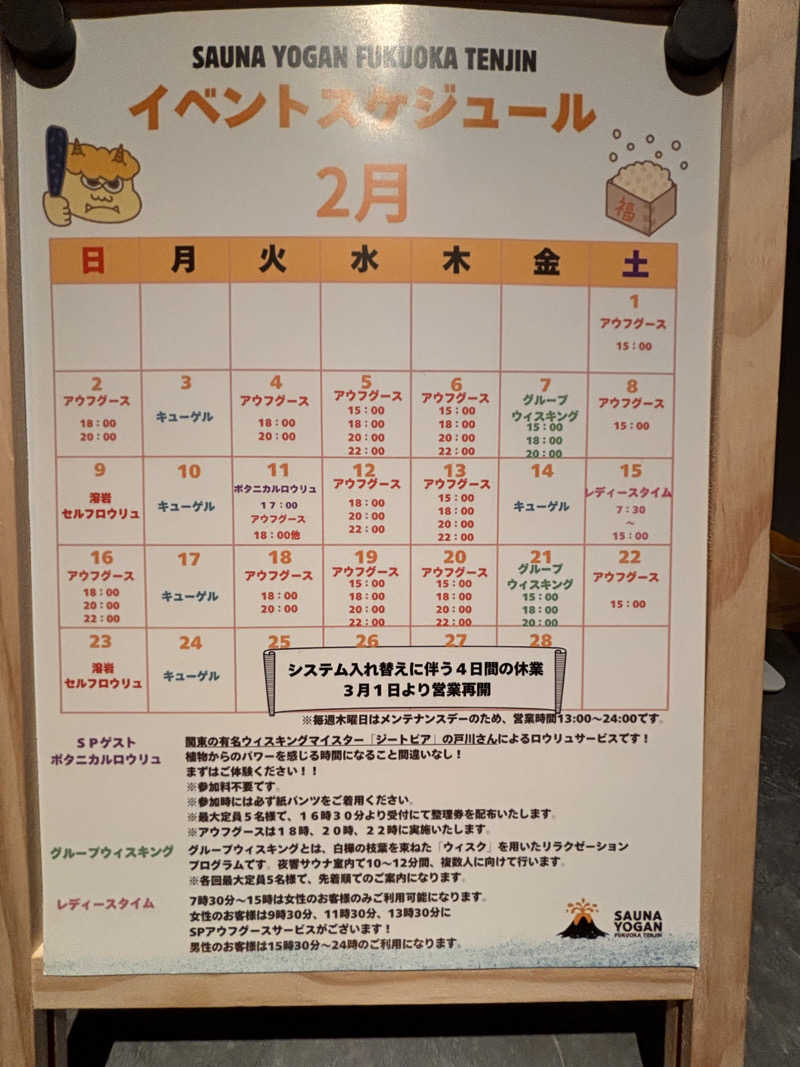 SAUNA YOGAN FUKUOKA TENJIN
イベントスケジュール
2月
福
日 月 火 水 木 金 土
1
アウフグース
15：00
2
アウフグース
18：00
20：00
3
キューゲル
4
アウフグース
18：00
20：00
5
アウフグース
15：00
18：00
20：00
22：00
6
アウフグース
15：00
18：00
20：00
22：00
7
グループ
ウィスキング
15：00
18：00
20：00
8
アウフグース
15：00
9
溶岩
セルフロウリュ
10
キューゲル
11
ボタニカルロウリュ
17：00
アウフグース
18：00他
12
アウフグース
18：00
20：00
22：00
13
アウフグース
15：00
18：00
20：00
22：00
14
キューゲル
15
レディースタイム
7：30
～
15：00
16
アウフグース
18：00
20：00
22：00
17
キューゲル
18
アウフグース
18：00
20：00
19
アウフグース
15：00
18：00
20：00
22：00
20
アウフグース
15：00
18：00
20：00
22：00
21
グループ
ウィスキング
15：00
18：00
20：00
22
アウフグース
15：00
23
溶岩
セルフロウリュ
24
キューゲル
25 26 27 28
システム入れ替えに伴う４日間の休業
３月１日より営業再開
※毎週木曜日はメンテナンスデーのため、営業時間13:00～24:00です。
ＳＰゲスト
ボタニカルロウリュ
関東の有名ウィスキングマイスター「ジートピア」の戸川さんによるロウリュサービスです！
植物からのパワーを感じる時間になること間違いなし！
まずはご体験ください！！
※参加料不要です。
※参加時には必ず紙パンツをご着用ください。
※最大定員５名様で、１６時３０分より受付にて整理券を配布いたします。
※アウフグースは１８時、２０時、２２時に実施いたします。
グループウィスキング
グループウィスキングとは、白樺の枝葉を束ねた「ウィスク」を用いたリラクゼーション
プログラムです。夜響サウナ室内で10～12分間、複数人に向けて行います。
※各回最大定員5名様で、先着順でのご案内になります。
レディースタイム
7時30分～15時は女性のお客様のみご利用可能になります。
女性のお客様は9時30分、11時30分、13時30分に
SPアウフグースサービスがございます！
男性のお客様は15時30分～24時のご利用になります。
SAUNA
YOGAN
FUKUOKA TENJIN